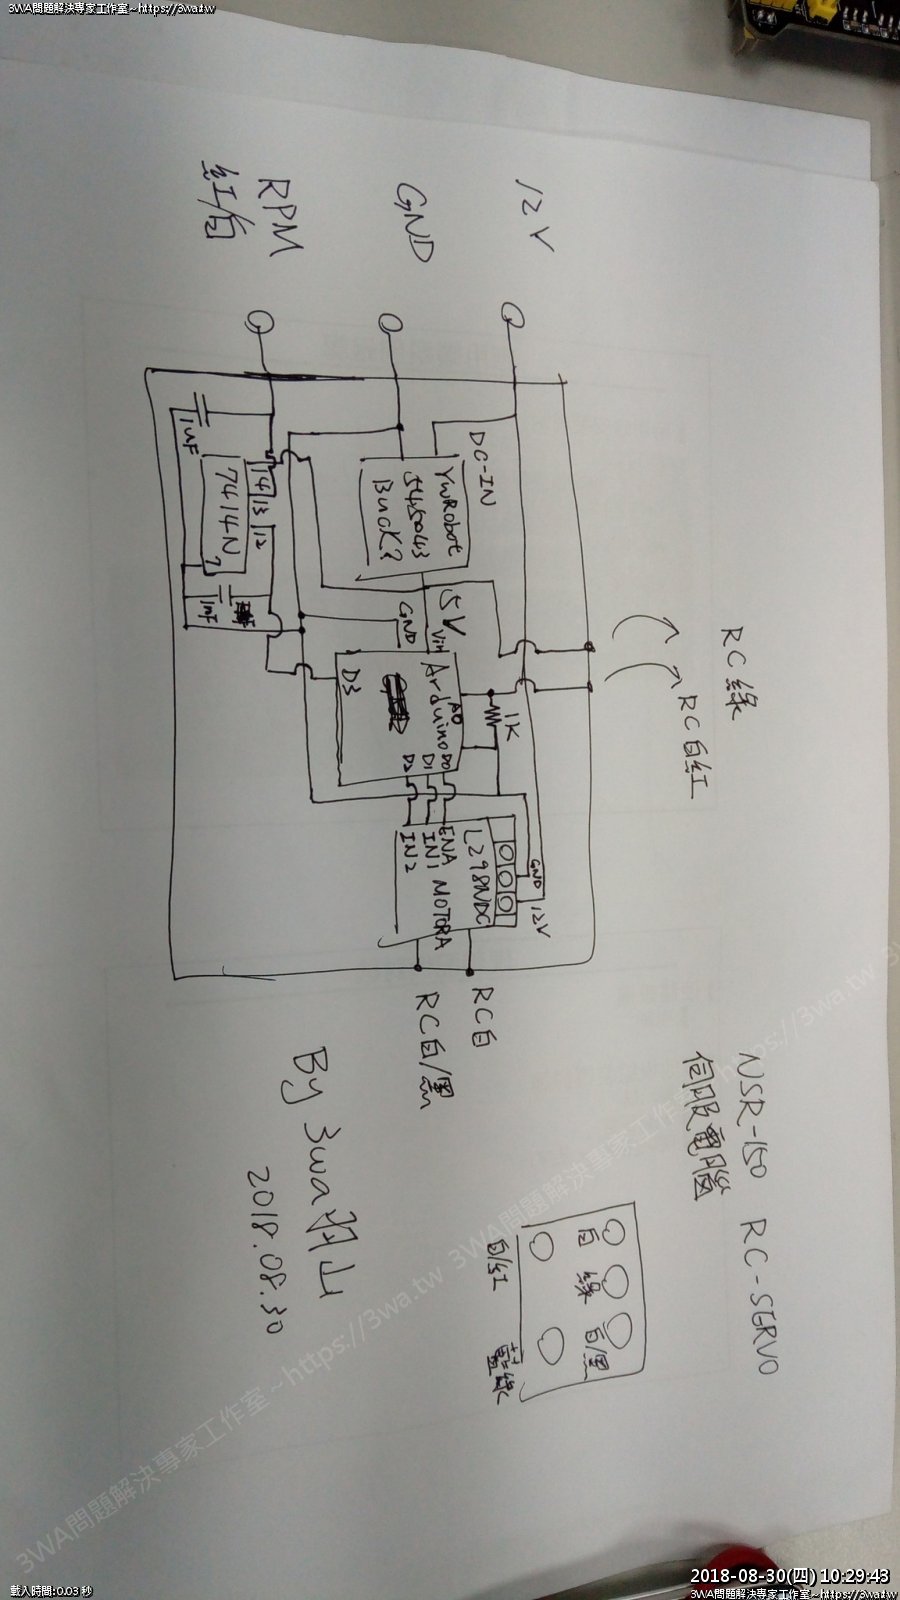 3WA問題解決專家工作室~https://3wa.tw
NSR-150 RC-SERVO
伺服電腦
RC綠
RC白紅
12V
GND
RPM
紅/白
DC-IN
YwRobot
545043
Buck?
5V
1uF
7414N
14
13
12
7
1uF
GND
Vin
Arduino
A0
D0
D1
D2
D3
1K
GND
12V
L298NDC
MOTORA
ENA
IN1
IN2
RC白
RC白/黑
白
綠
白/黑
白/紅
藍綠
By 3wa羽山
2018.08.30
3WA問題解決專家工作室~https://3wa.tw 3WA問題解決專家工作室~https://3wa.tw
載入時間:0.03 秒
2018-08-30(四) 10:29:43
3WA問題解決專家工作室~https://3wa.tw